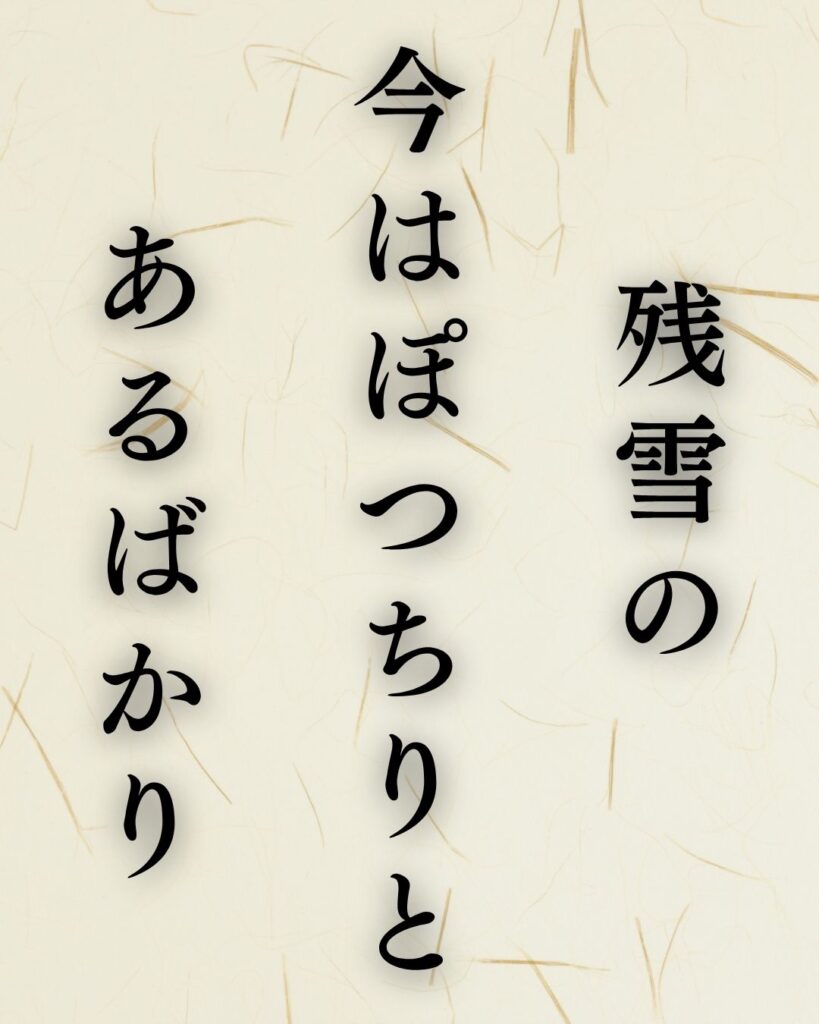 残雪の
今はぽつちりと
あるばかり